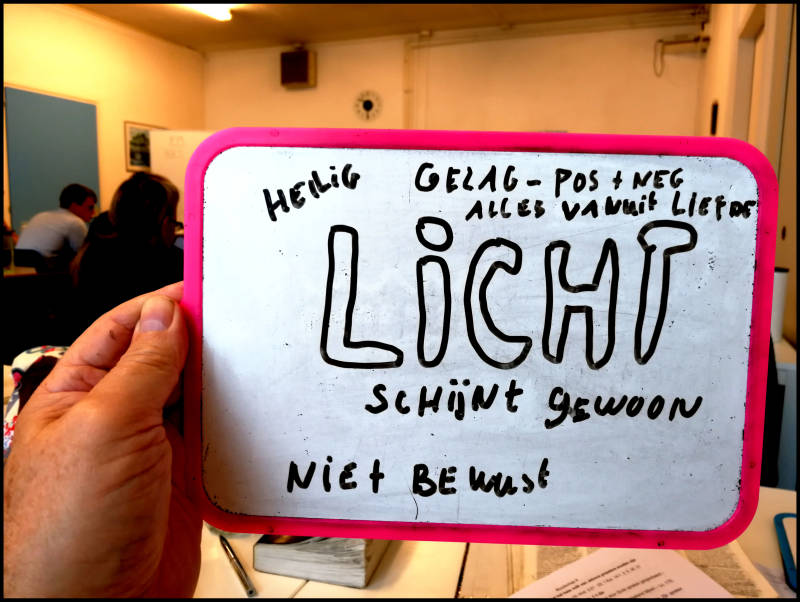 HEILIG
GELAG - POS + NEG
ALLES VANUIT LIEFDE
LICHT
SCHIJNT GEWOON
NIET BEWUST